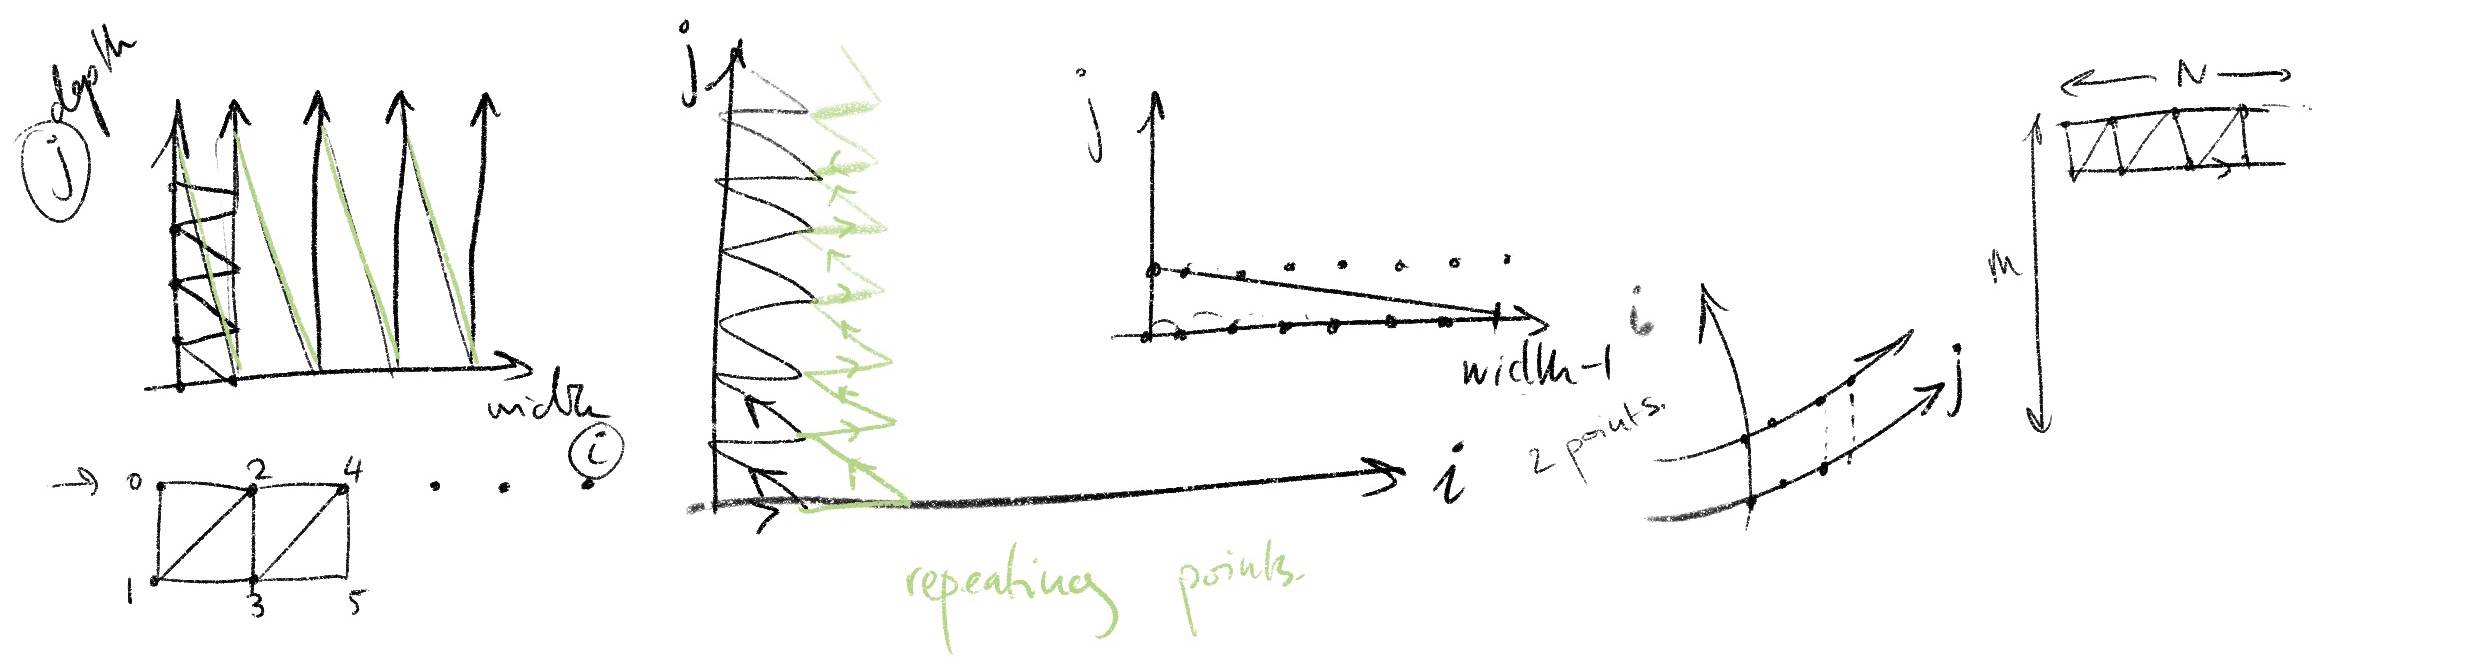 depth
j
width
i
0 2 4
1 3 5
j
i
repeating points.
j
width-1
i
j
2 points.
N
m